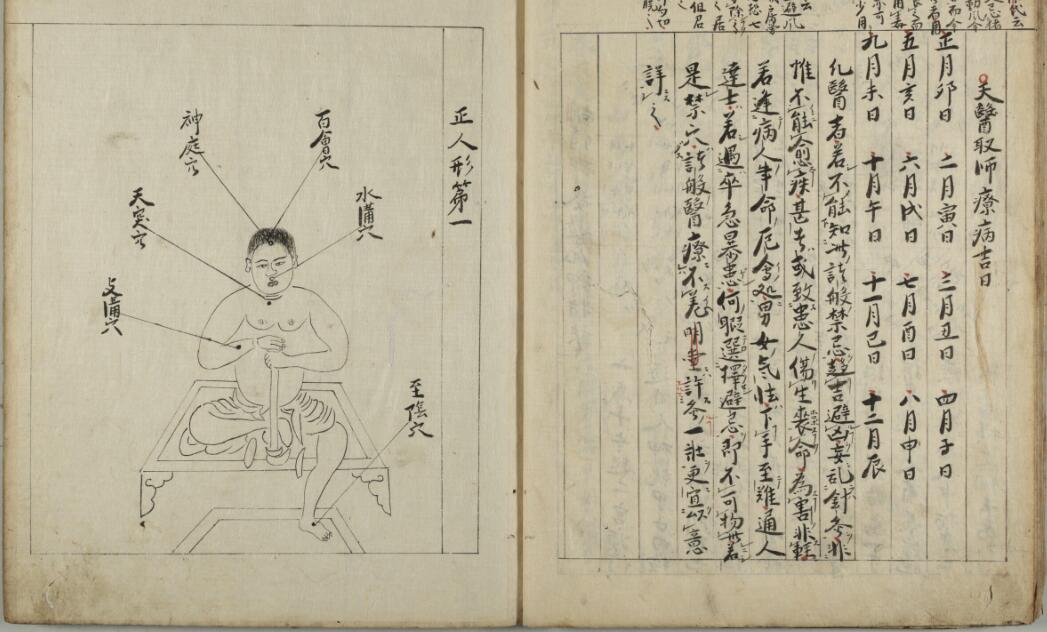 天醫取師療病吉日
正月卯日 二月寅日 三月丑日 四月子日
五月亥日 六月戌日 七月酉日 八月申日
九月未日 十月午日 十一月巳日 十二月辰
凡醫者若不能知此諸般禁忌趍吉避凶妄乱針灸非
惟不能愈疾甚者或致患人傷生喪命為害非輕
若逢病人年命厄會処男女氣怯下手至難通人
達士若遇卒急暴患何暇選擇避忌即不可拘此若
是禁穴諸般醫療不差明堂許灸一壯更宜以意
詳之
正人形第一
百會穴
神庭穴
水溝穴
天突穴
支溝穴
至陰穴